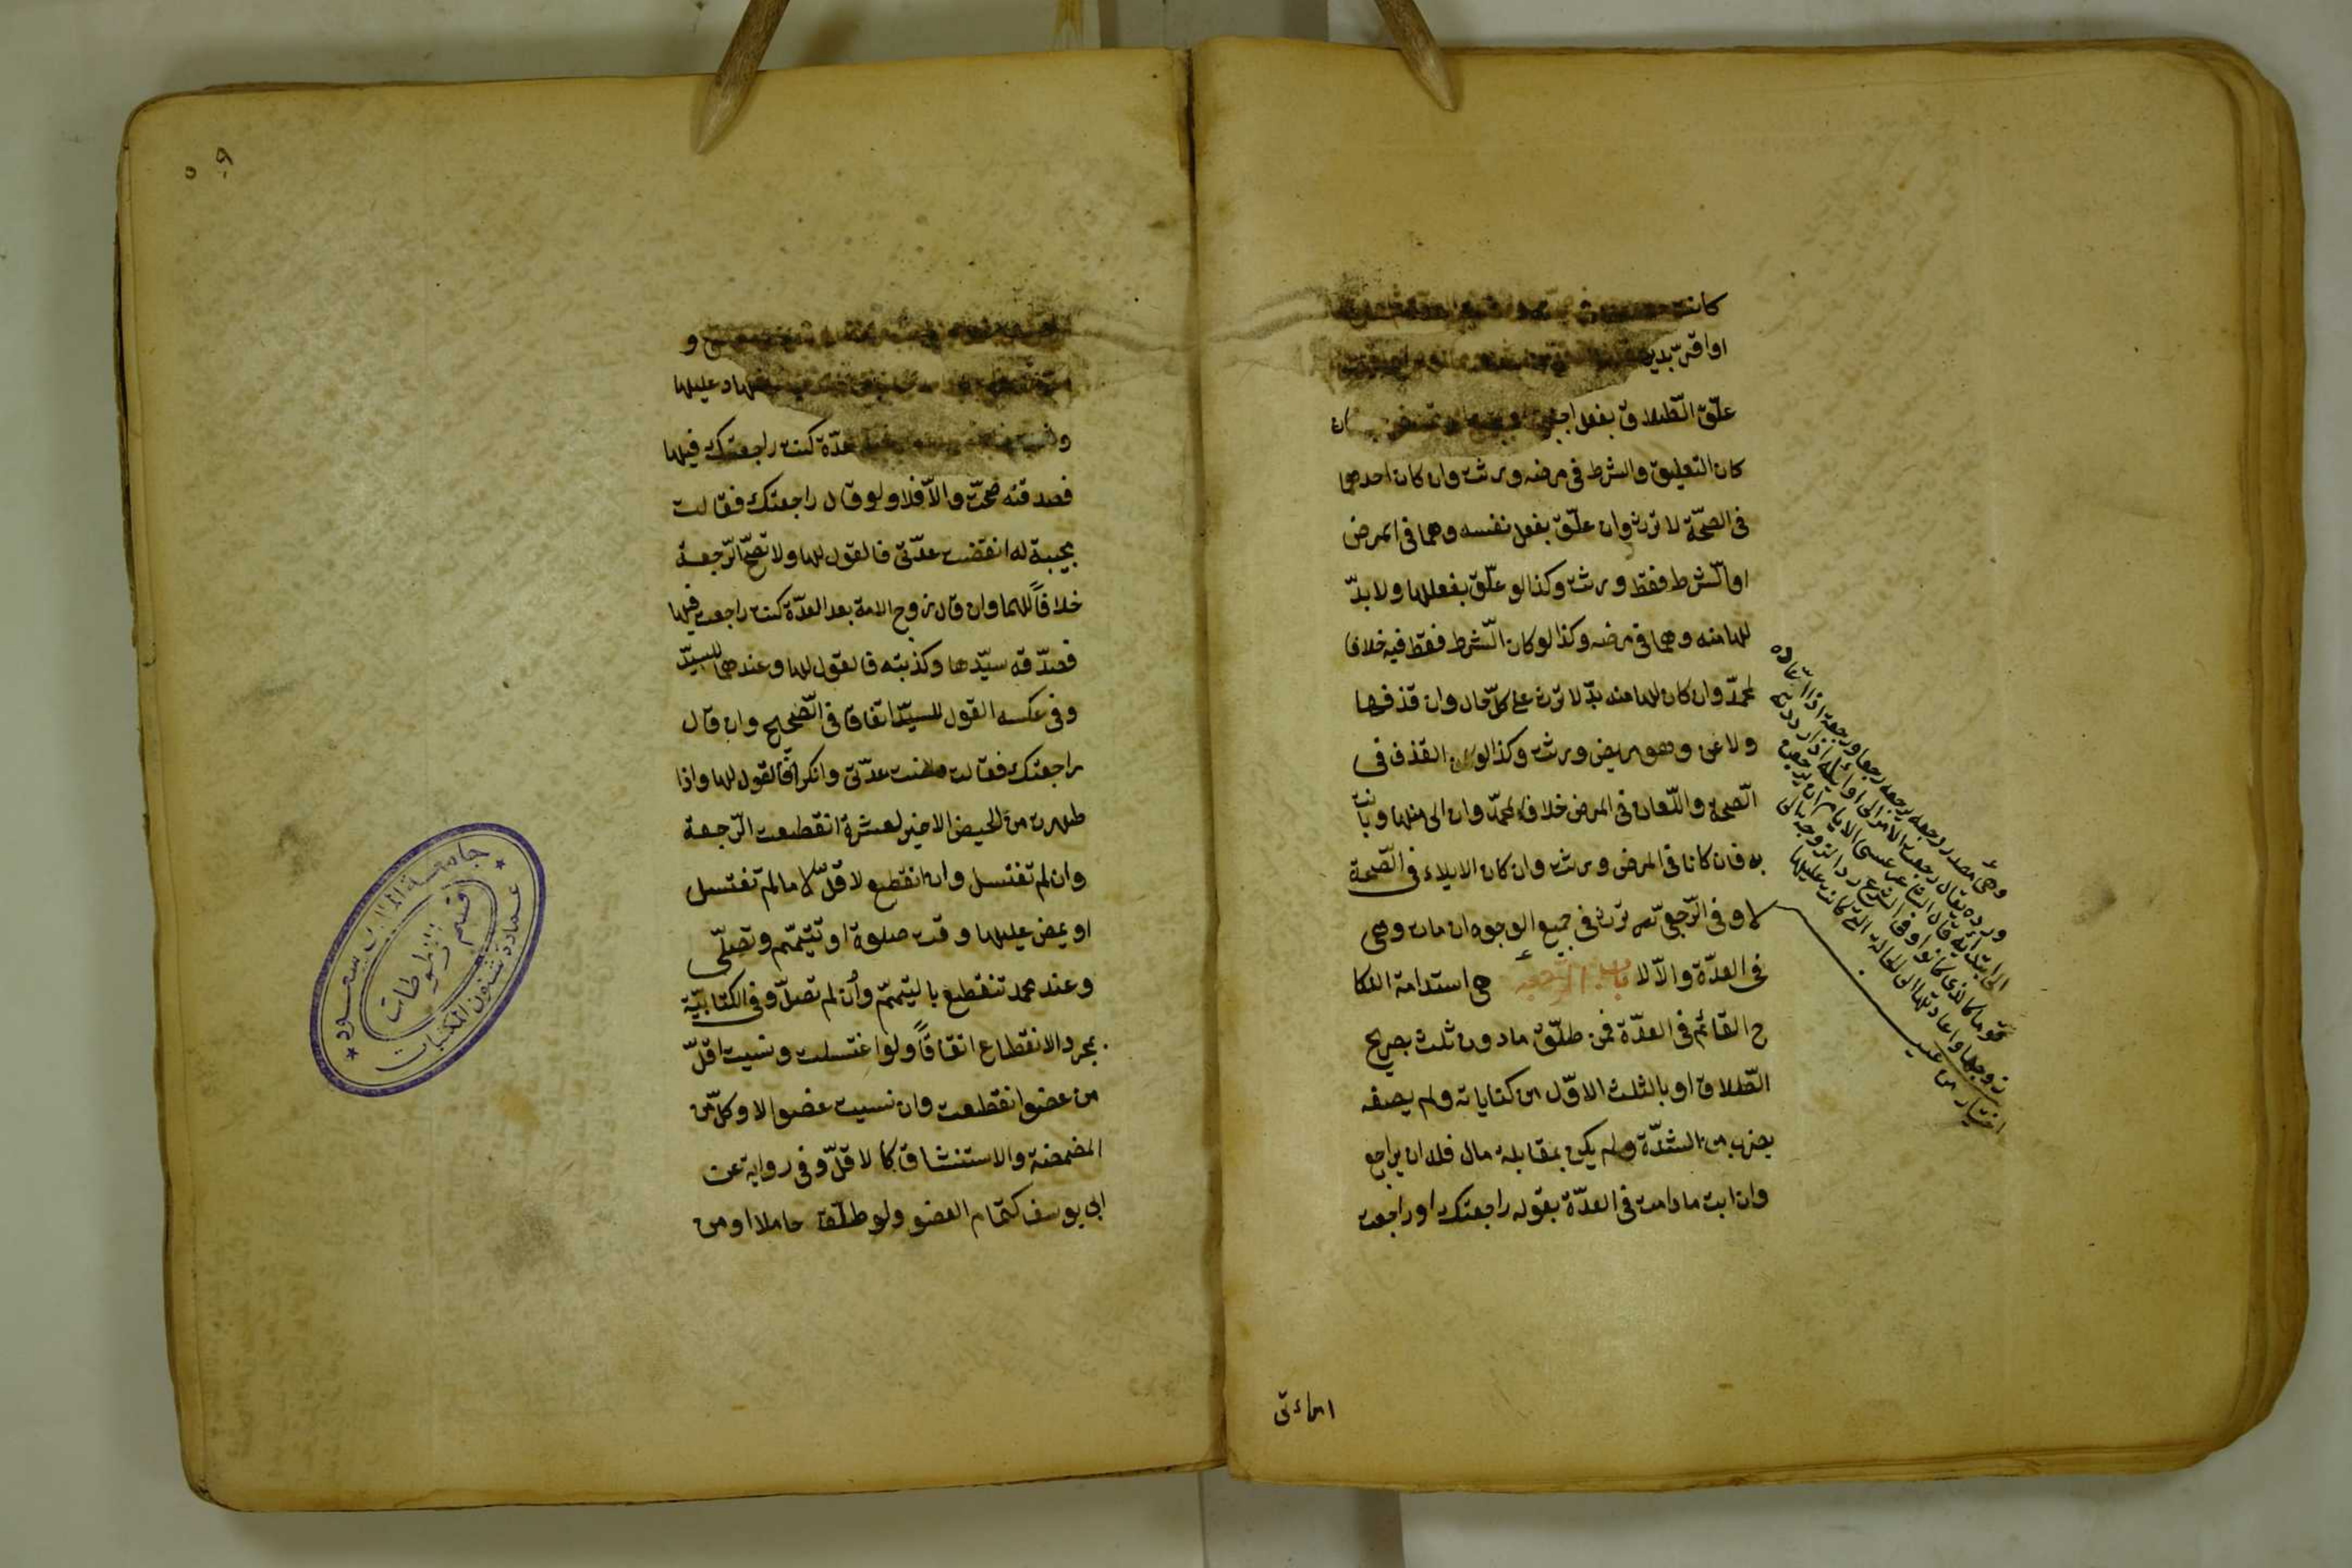 كانت
او اقرّ بدين
علّق الطّلاق بفعل ان
كان التعليق والشرط في مرضه ورثت وان كان احدهما
فى الصحّة لا ترث وان علّق بفعل نفسه وهما فى المرض
او الشرط فقط ورثت وكذا لو علّق بفعلها ولا بدّ
لها منه وهما في مرضه وكذا لو كان الشرط فقط فيه خلافا
لمحمدّ وان كان لها منه بدّ لا ترث على كلّ حال وان قذفها
ولاعن وهو مريض ورثت وكذا لو كان القذف فى
الصّحة واللّعان فى المرض خلافا لمحمّد وان الى منها وبانت
به فان كانا فى المرض ورثت وان كان الايلاء فى الصّحة
لا وفى الرّجعىّ ترث فى جميع الوجوه ان مات وهى
فى العدّة والّا لا باب الرّجعة هى استدامة النكا
ح القائم فى العدّة فمن طلّق ما دون ثلث بصريح
الطّلاق او بالثلث الاوّل من كناياته ولم يصفه
بضرب من الشدّة ولم يكن بمقابلة مال فله ان يراجع
وان ابت ما دامت فى العدّة بقوله راجعتك او راجعت
امراءتى
وهى مصدر رجعه يرجعه رجعا ورجعة اذا اعاده
ورده يقال رجعت الامر الى اوائله اذا رددته
الى ابتدائه قال الشاعر عسى الايام ان يرجعن
قوما كالذى كانوا وفى الشرع رد الزوجة الى
زوجها واعادتها الى الحالة التى كانت عليها
اختيار من عينه
و
عليها
عدّة كنت راجعتك فيها
فصدقته صحّت والاّ فلا ولو قال راجعتك فقالت
مجيبة له انقضت عدّتى فالقول لها ولا تصحّ الرّجعة
خلافاً لهما وان قال زوج الامة بعد العدّة كنت راجعت فيها
فصدّقه سيّدها وكذبته فالقول لها وعندهما للسيّد
وفى عكسه القول للسيّد اتفاقا فى الصّحيح وان قال
راجعتك فقالت مضت عدّتى وانكرا فالقول لها واذا
طهرت من الحيض الاخير لعشرة انقطعت الرّجعة
وان لم تغتسل وان انقطع لاقلّ لا ما لم تغتسل
او يمض عليها وقت صلوة او تتيمّم وتصلّى
وعند محمد تنقطع بالتيمّم وأن لم تصلّ وفى الكتابيّة
بمجرد الانقطاع اتفاقاً ولو اغتسلت ونسيت اقلّ
من عضو انقطعت وان نسيت عضوا لا وكلّ من
المضمضة والاستنشاق كالاقلّ وفى رواية عن
ابى يوسف كتمام العضو ولو طلّق حاملا او من
جامعة الملك سعود
قسم المخطوطات
عمادة شئون المكتبات